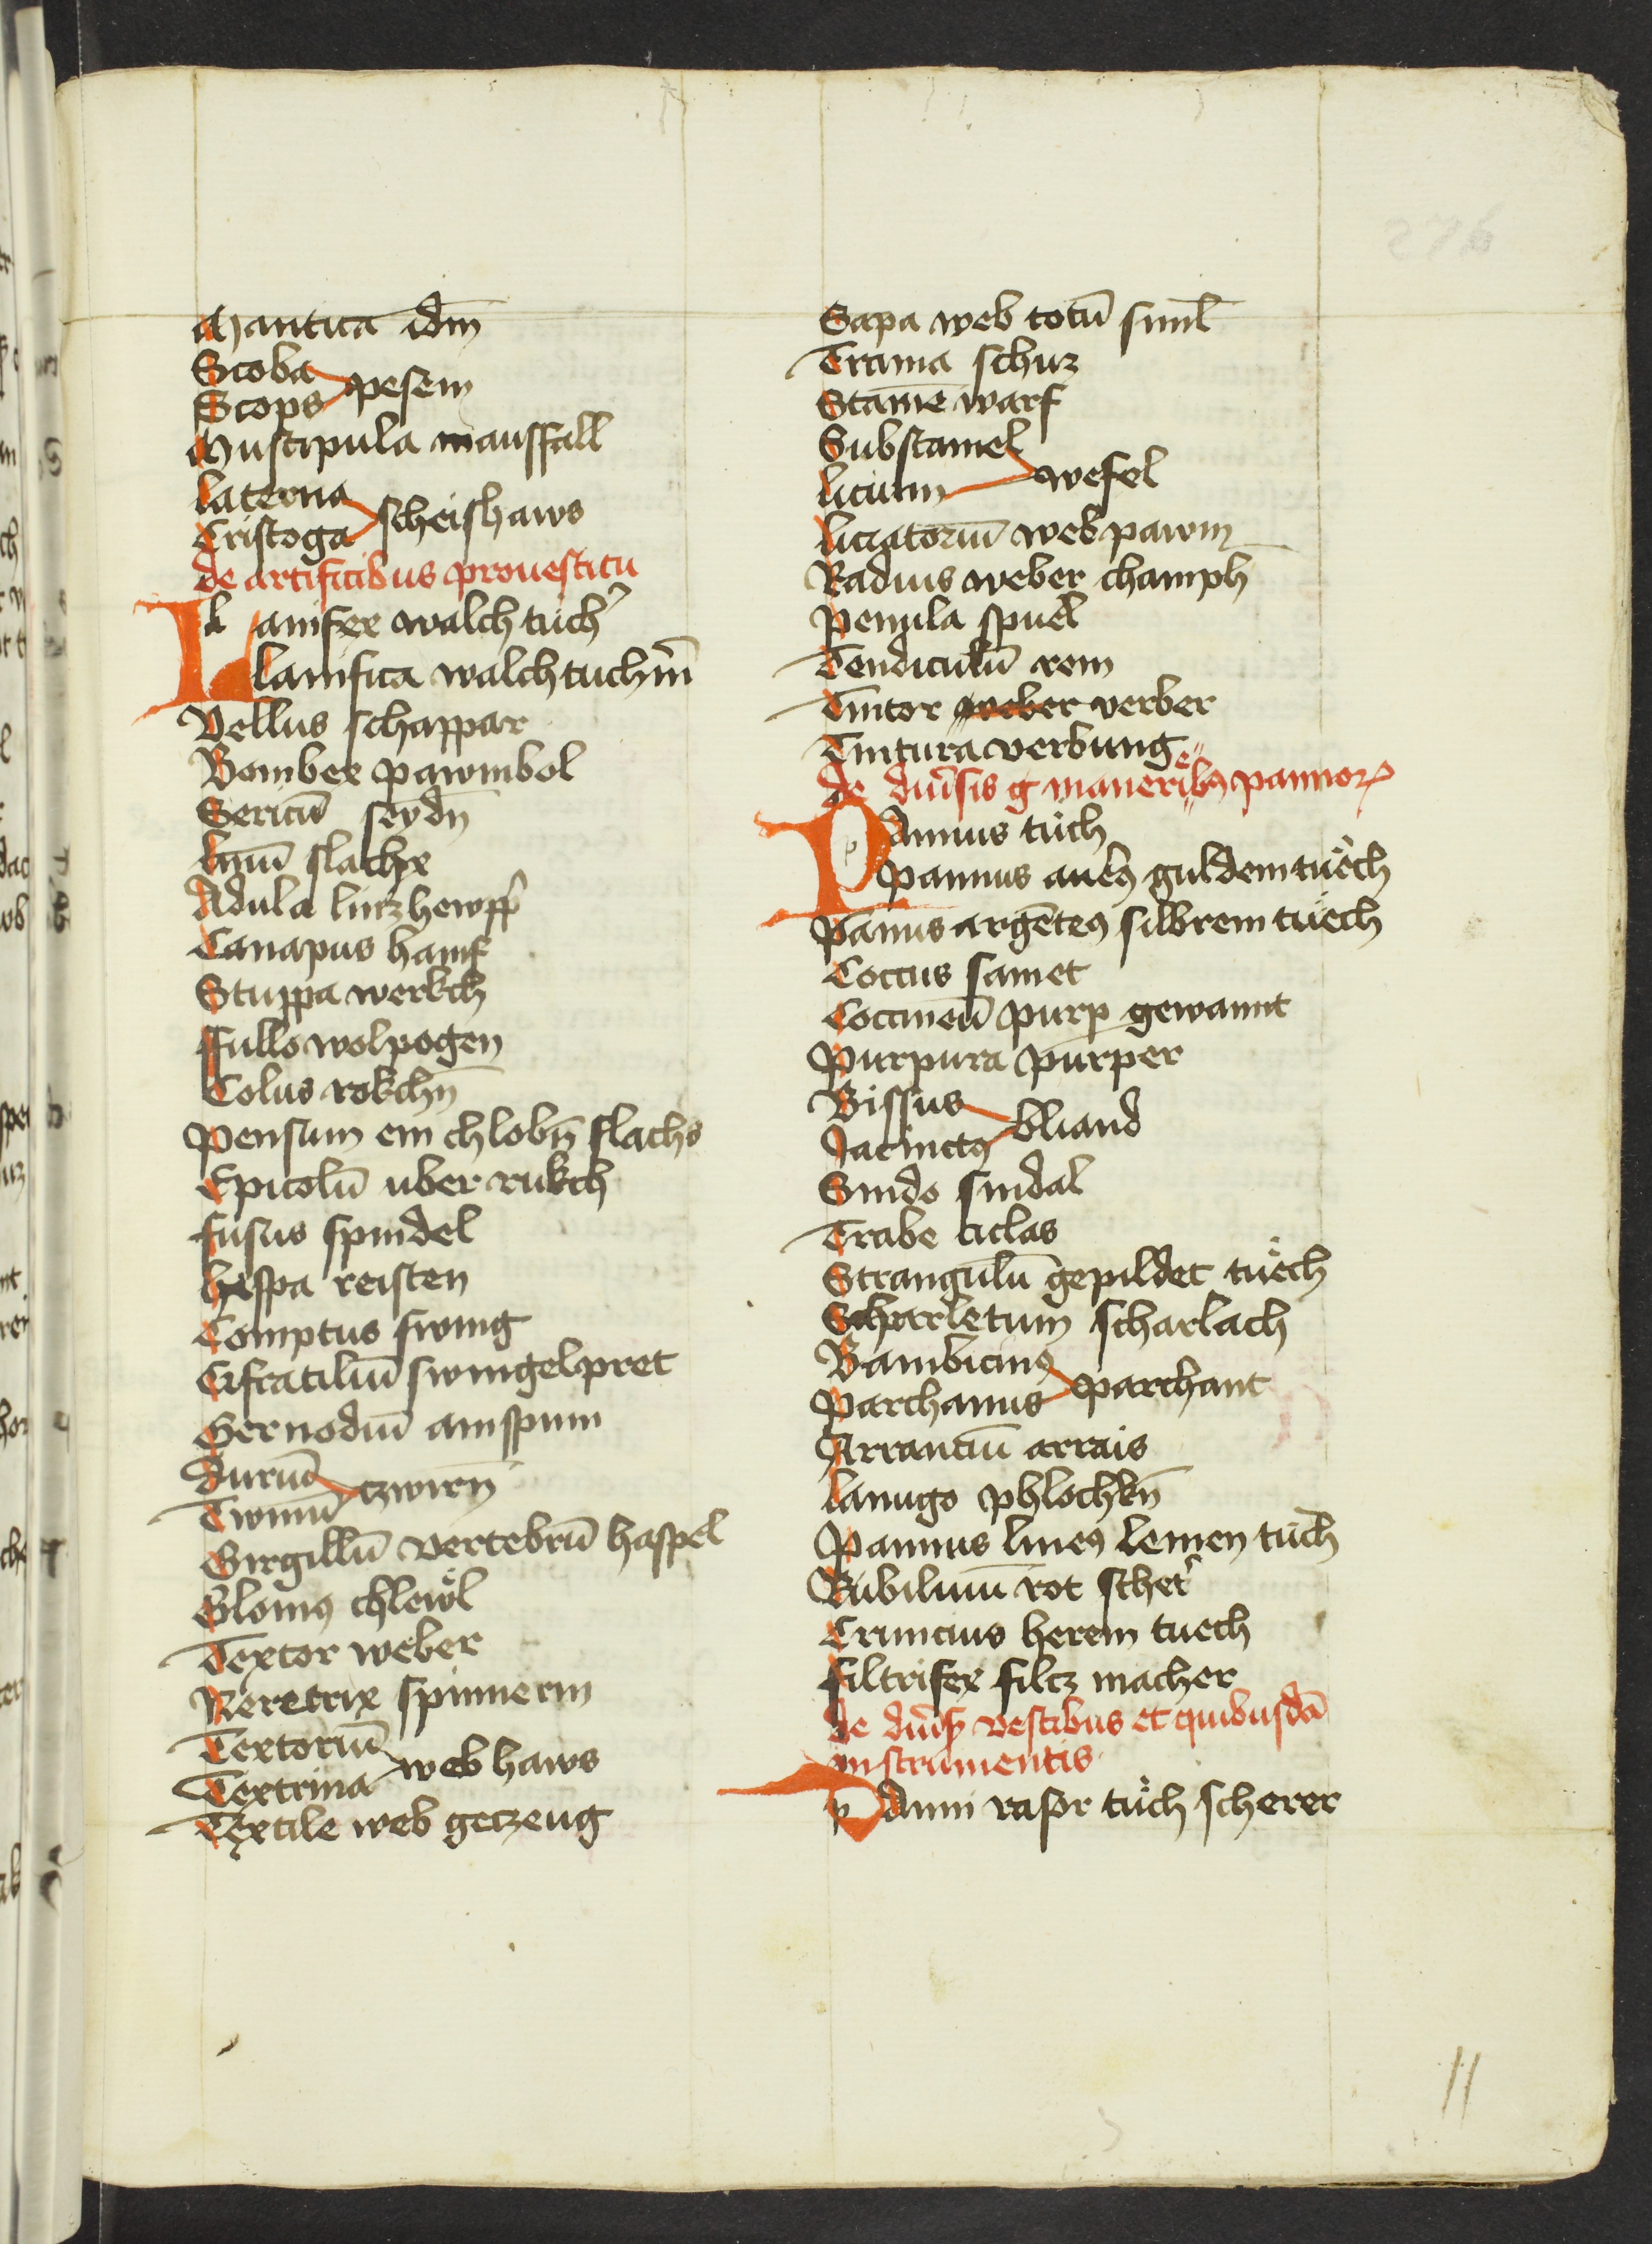 Mantica idm̄
Scoba
pesem
Scops
Mustipula mausfall
laterna
scheishaws
Cristoga
de artificibus pro vestitu
Lanifex walch tuch͛
lanifica walchtuch͛in̄
Vellus schappar
Bombex pawmbol
Sericū seydn̄
linū flachx
Adula linczhewpp͛
Canapus hanf
Stuppa werkch
ffullo wolpogen
Colus rokchn̄
Pensum ein chlobn̄ flachs
Epicolū uber rukch
fusus spindel
hespa reisten
Comptus swing
Cifratiliū swingelpret
Gernodiū anspun
Aurud
czwirn̄
Twinū
Girgillū vertebrū haspel
Glomꝰ chlewl
Textor weber
Reretrix spinnerin
Textoriū
web haws
Textrina
Textile web geczeug
Sapa web totū simł
Trama schuz
Stamē warf
Substamel
wefel
licium
liciatoriū web pawm
Radius weber champh
Penula spuel
Tendiculū rem
Tintor weber verber
Tintura verbung
de diu͛sis g̃ maneriebꝰ pannoꝝ
Pannus tuch
Pannus aureꝰ guldem tuech
Pannus argēteꝰ silbrem tuech
Coccus samet
Coccineū purp gewannt
Purpura purper
Bissus
bliand
Jacinctꝰ
Sindo sindal
Trabe ciclas
Strangulū gepildet tuech
Scharletum scharlach
Bambicinꝰ
parchant
Parchanus
Arranciū arrais
lanugo phlochkn̄
Pannus lineꝰ leinen tuch
Rubiliuū rot schet͛
Crincius herein tuech
filtrifex filcz macher
de diu͛sꝭ vestibus et quibusdā
instrumentis
Panni rasor tuch scherer
11